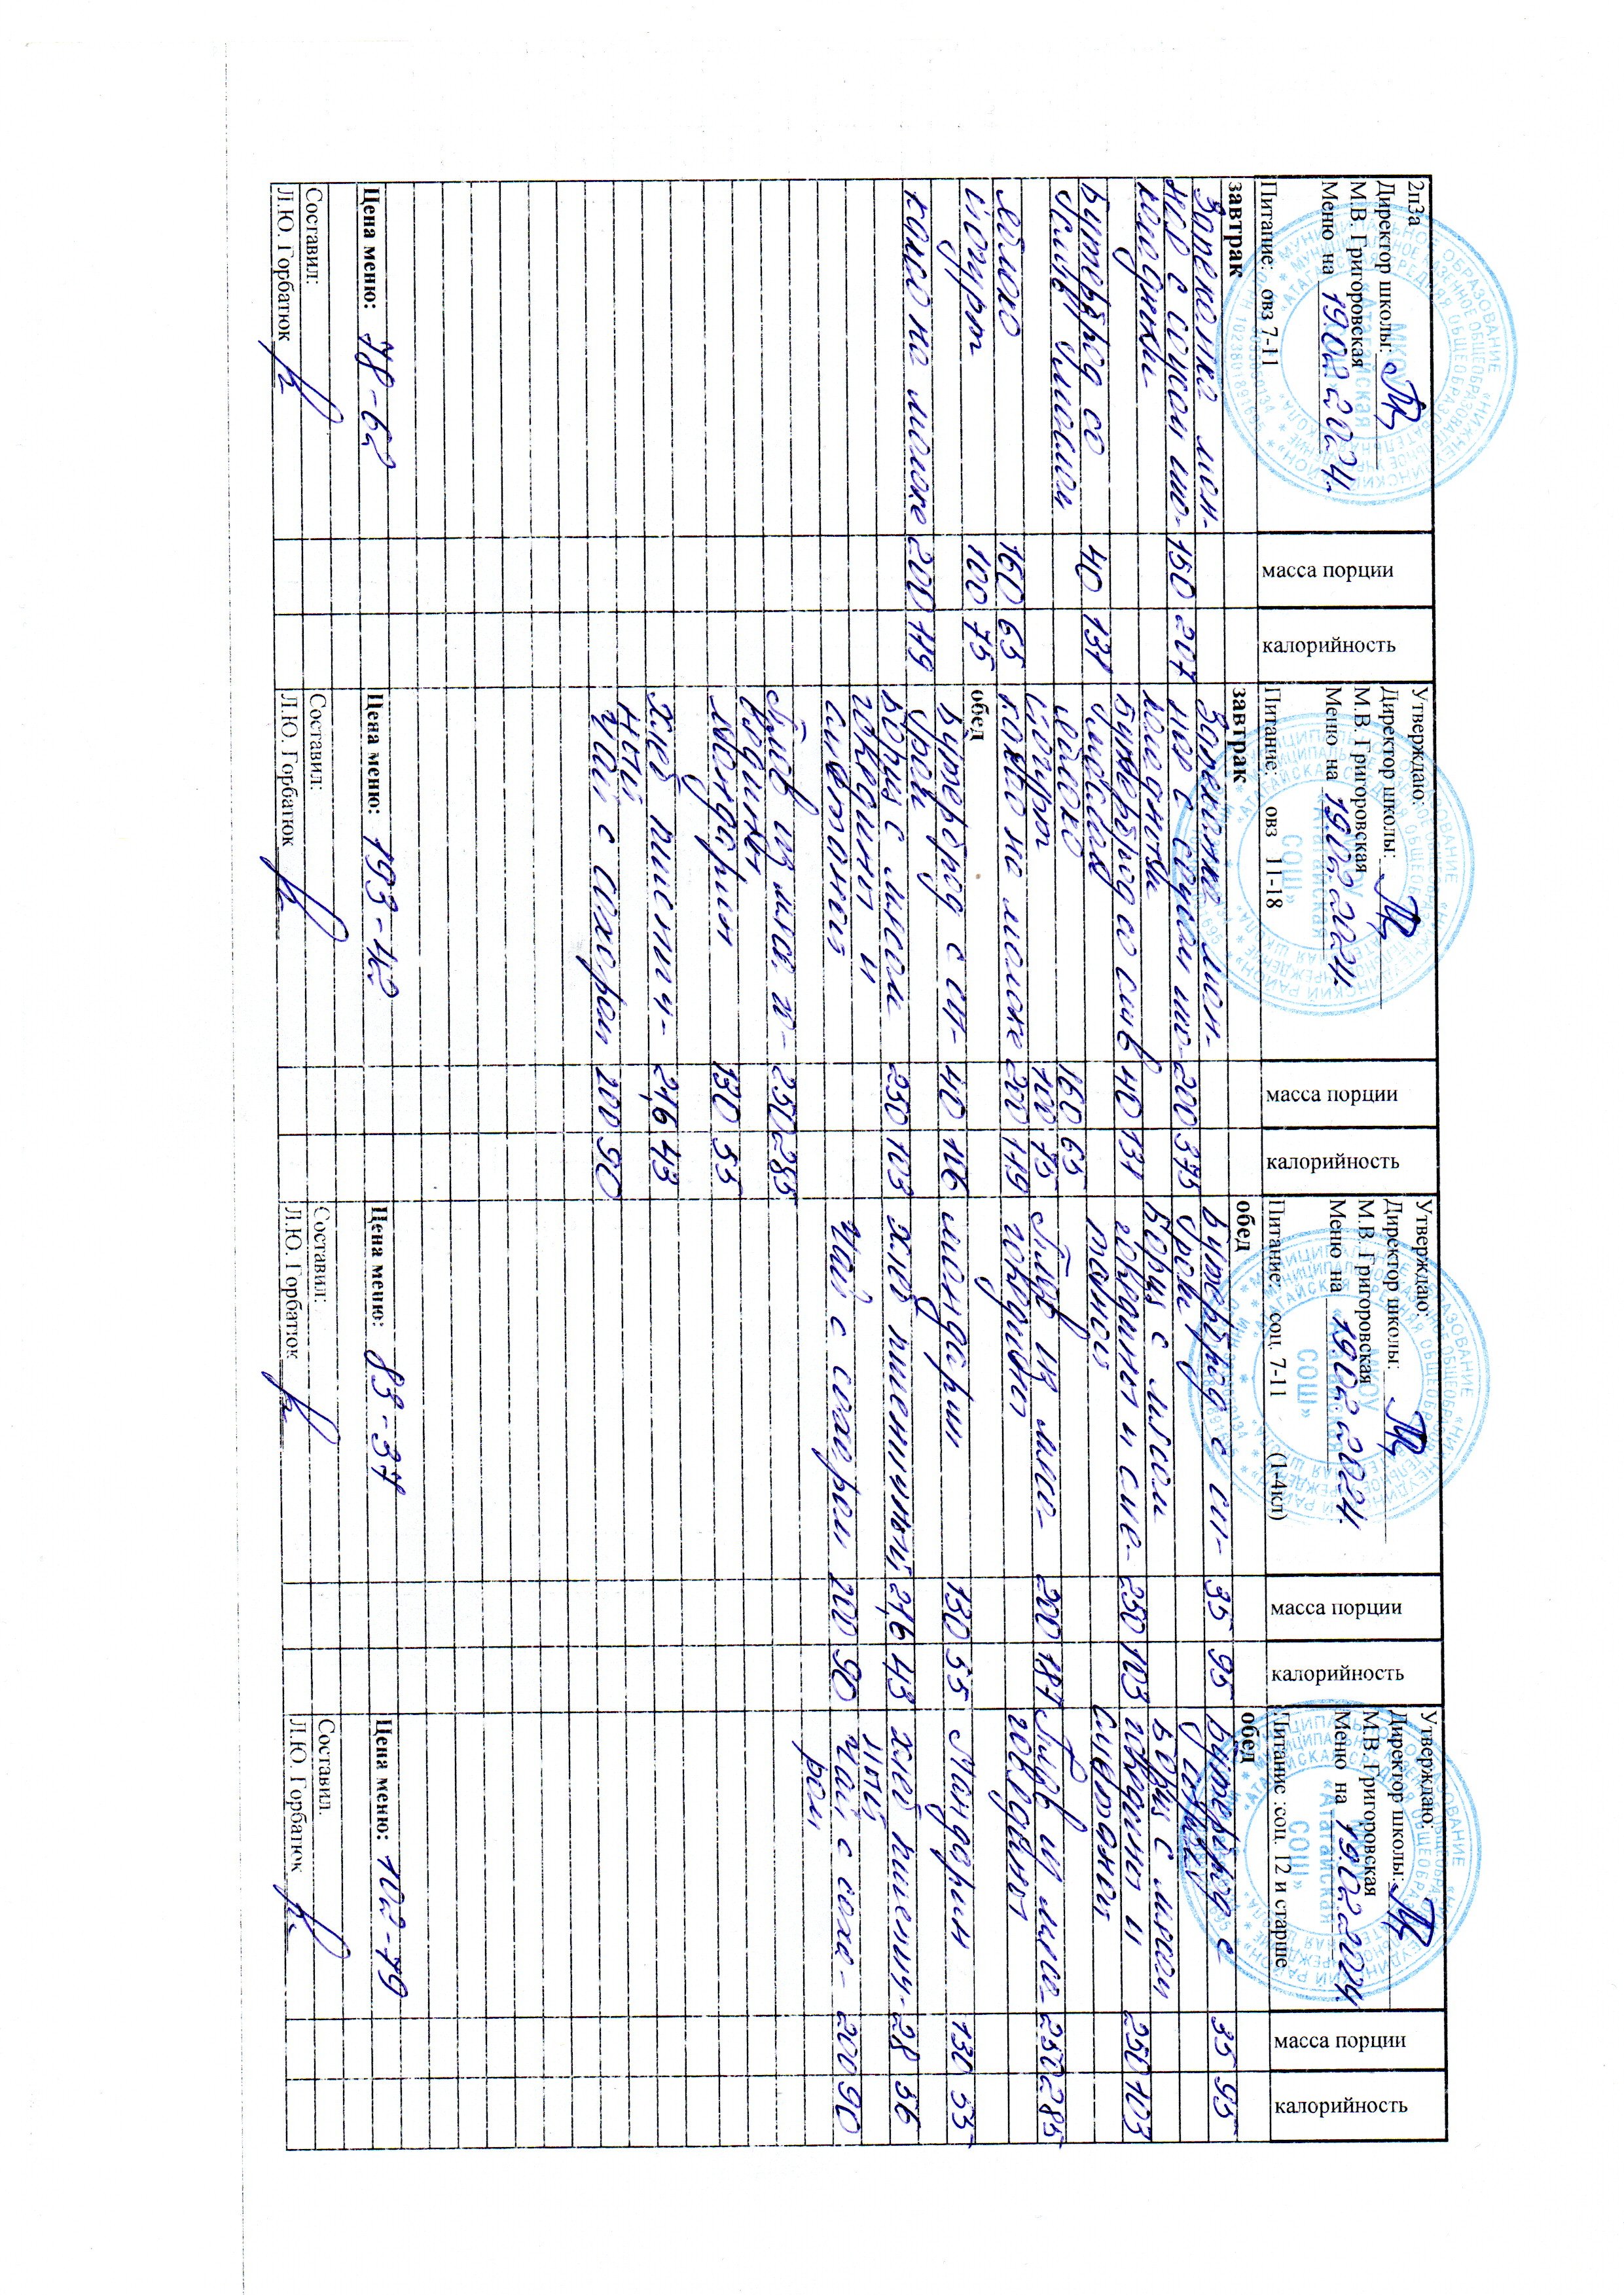 2пЗа
Директор школы:
М.В. Григоровская
Меню на 19.02.2024г
Питание: овз 7-11
масса порции
калорийность
завтрак
Запеканка ман-
ная с соусом шо- 150 207
коладным
Бутерброд со 40 131
сливч маслом
яблоко 160 65
йогурт 100 75
какао на молоке 200 119
Цена меню: 78-62
Составил:
Л.Ю. Горбатюк
Утверждаю:
Директор школы:
М.В. Григоровская
Меню на 19.02.2024.
Питание: овз 11-18
масса порции
калорийность
завтрак
Запеканка ман-
ная с соусом шо- 200 375
коладным
Бутерброд со слив 40 131
маслом
яблоко 160 65
йогурт 100 75
какао на молоке 200 119
обед
Бутерброд с сы- 40 116
ром
Борщ с мясом 250 103
говядины и
сметаной
Плов из мяса го- 250 285
вядины
Мандарин 130 55
Хлеб пшенич- 21,6 43
ный
Чай с сахаром 200 90
Цена меню: 193-42
Составил:
Л.Ю. Горбатюк
Утверждаю:
Директор школы:
М.В. Григоровская
Меню на 19.02.2024.
Питание: соц. 7-11 (1-4кл)
масса порции
калорийность
обед
Бутерброд с сы- 35 95
ром
Борщ с мясом
говядины и сме- 250 103
таной
Плов из мяса 200 187
говядины
мандарин 130 55
хлеб пшеничный 21,6 43
Чай с сахаром 200 90
Цена меню: 83-37
Составил:
Л.Ю. Горбатюк
Утверждаю:
Директор школы:
М.В. Григоровская
Меню на 19.02.2024
Питание :соц. 12 и старше
масса порции
калорийность
обед
Бутерброд с 35 95
сыром
Борщ с мясом
говядины и 250 103
сметаной
Плов из мяса 250 285
говядины
Мандарин 130 55
хлеб пшенич- 28 56
ный
Чай с саха- 200 90
ром
Цена меню: 102-79
Составил.
Л.Ю. Горбатюк